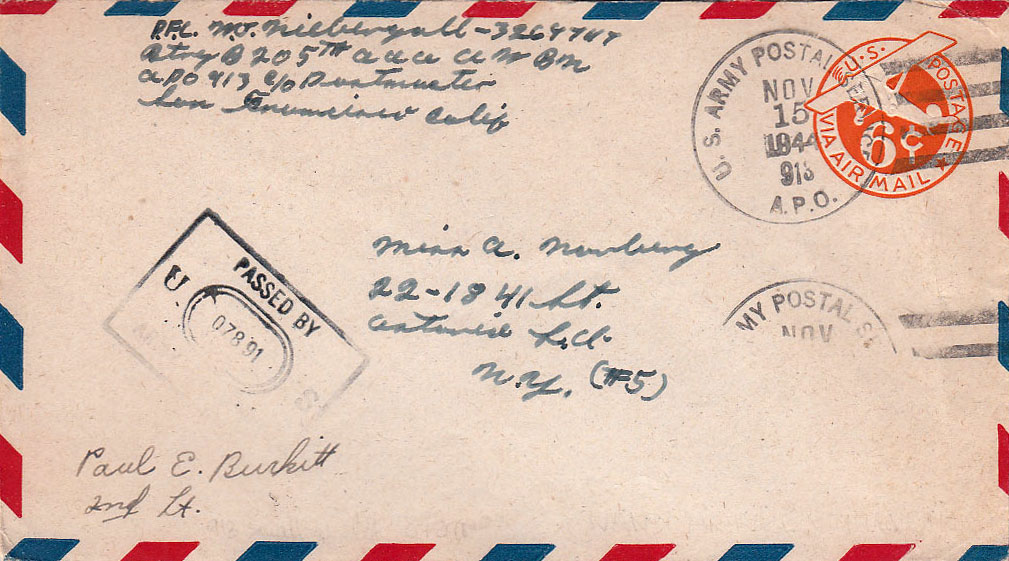 P.F.C. M.J. Niebergall - 3264
Btry B 205TH a a a a W Bn
APO 913 c/o Postmaster
San Francisco Calif
U.S. ARMY POSTAL SERVICE
NOV
15
1944
913
A.P.O.
U.S. POSTAGE
6¢
VIA AIR MAIL
Miss A. Nowberg
22-18 41 St.
Astoria L.I.
N.Y. (#5)
MY POSTAL SE
NOV
PASSED BY
U. S.
07891
Paul E. Burkitt
2nd Lt.